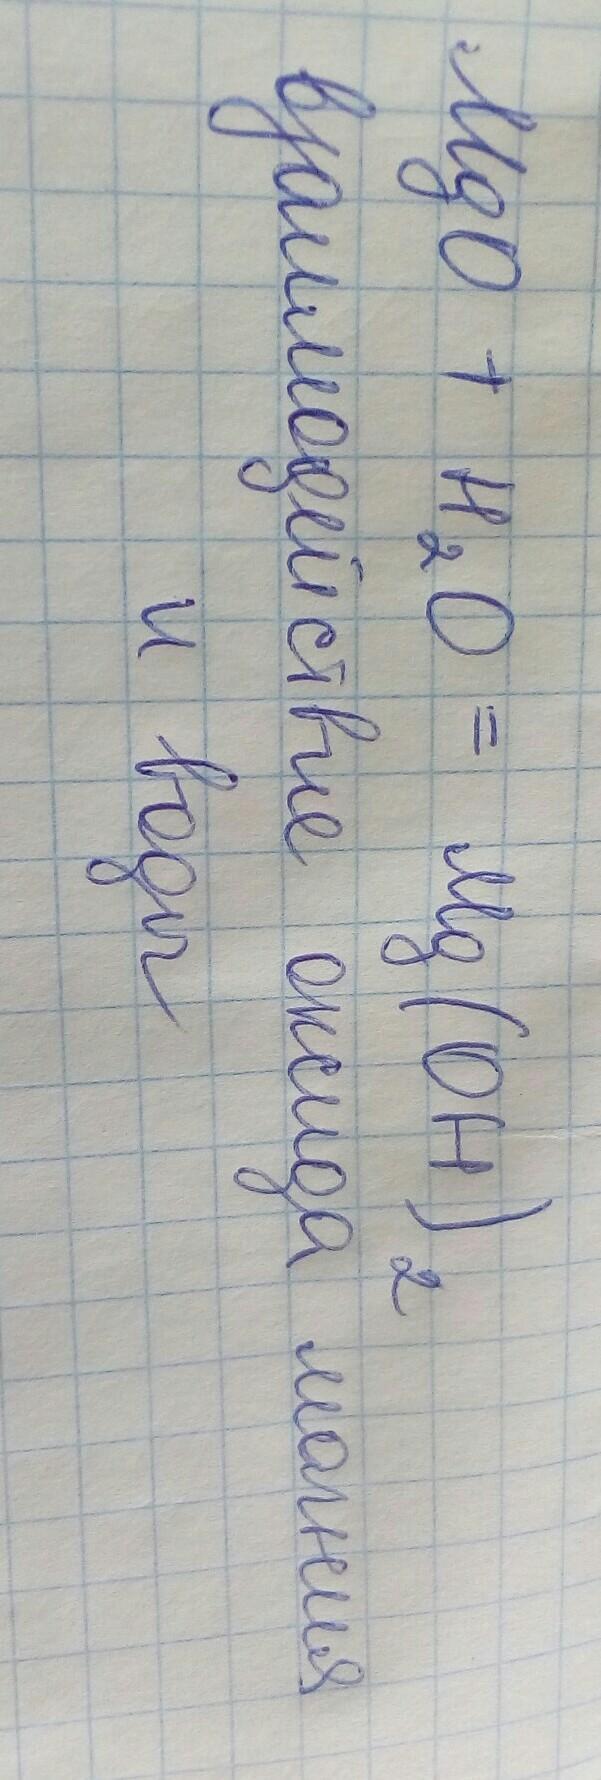 MgO + H₂O = Mg(OH)₂
взаимодействие оксида магния
и воды